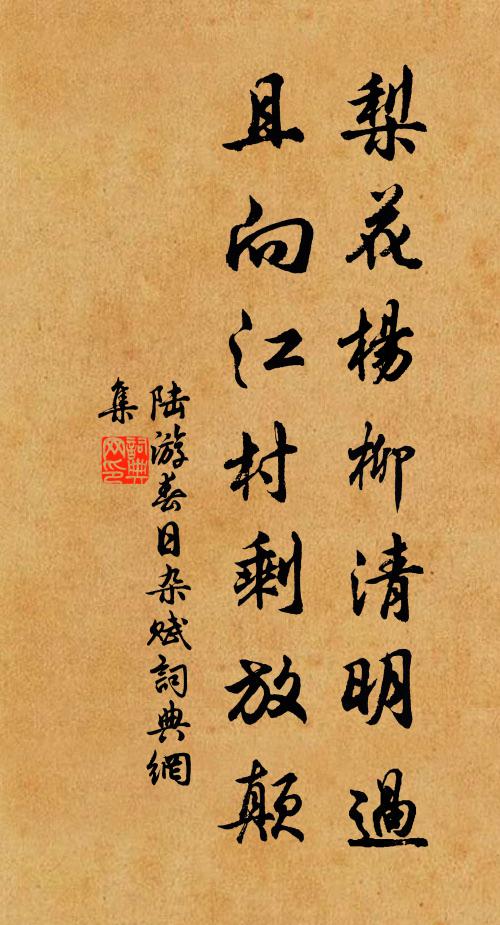 梨花楊柳清明過
且向江村剩放顛
陆游春日杂赋詞典網
集
詞典网印